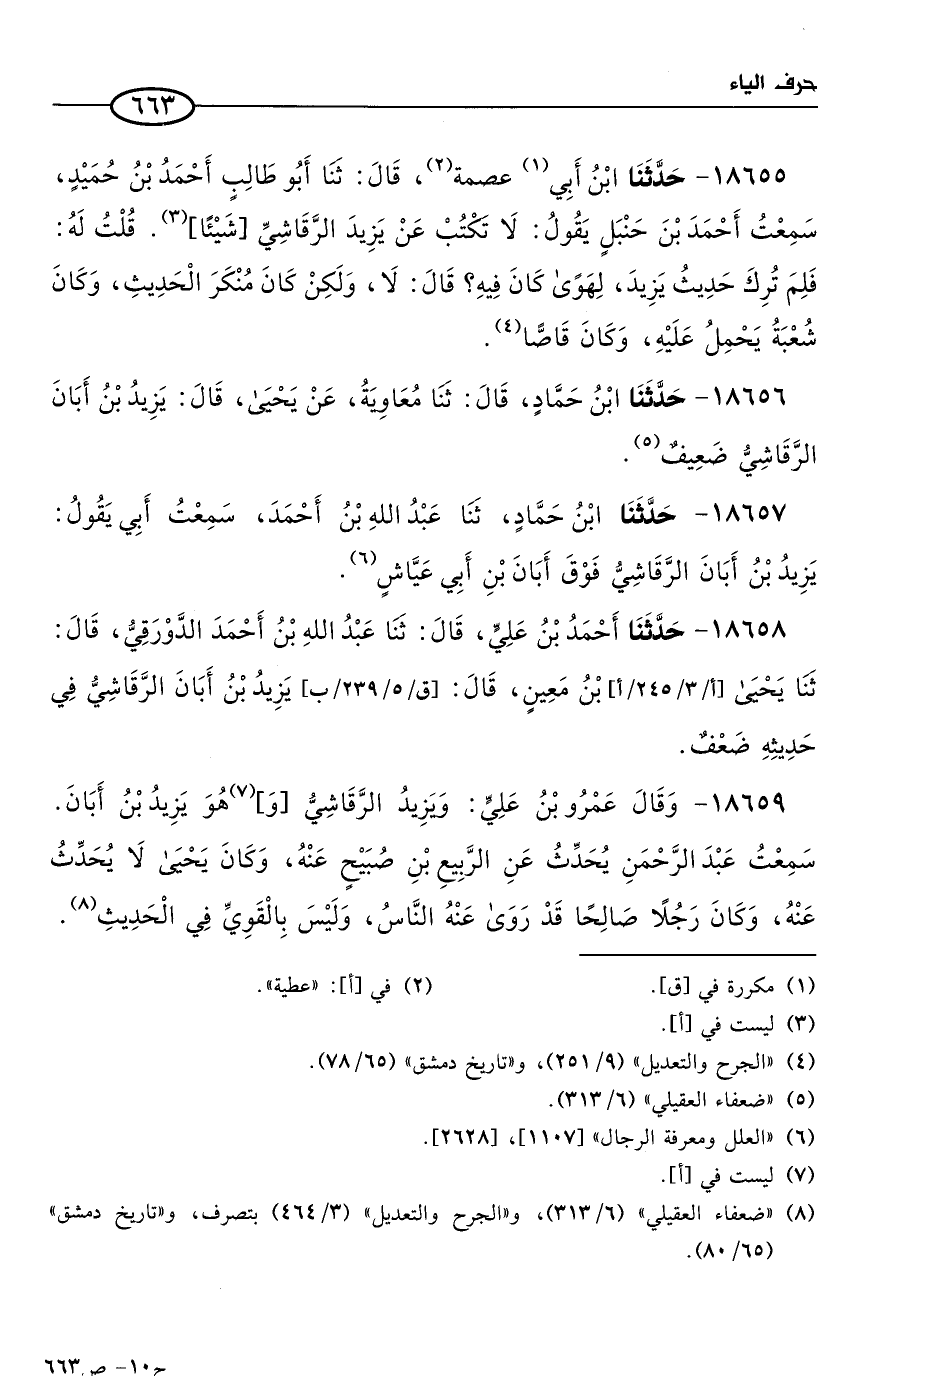 حرف الياء
٦٦٣
١٨٦٥٥- حَدَّثَنَا ابْنُ أَبِي(١) عصمة(٢)، قَالَ: ثَنَا أَبُو طَالِبٍ أَحْمَدُ بْنُ حُمَيْدٍ،
سَمِعْتُ أَحْمَدَ بْنَ حَنْبَلٍ يَقُولُ: لَا تَكْتُبْ عَنْ يَزِيدَ الرَّقَاشِيِّ [شَيْئًا](٣). قُلْتُ لَهُ:
فَلِمَ تُرِكَ حَدِيثُ يَزِيدَ، لِهَوًى كَانَ فِيهِ؟ قَالَ: لَا، وَلَكِنْ كَانَ مُنْكَرَ الْحَدِيثِ، وَكَانَ
شُعْبَةُ يَحْمِلُ عَلَيْهِ، وَكَانَ قَاصًّا(٤).
١٨٦٥٦- حَدَّثَنَا ابْنُ حَمَّادٍ، قَالَ: ثَنَا مُعَاوِيَةُ، عَنْ يَحْيَىٰ، قَالَ: يَزِيدُ بْنُ أَبَانَ
الرَّقَاشِيُّ ضَعِيفٌ(٥).
١٨٦٥٧- حَدَّثَنَا ابْنُ حَمَّادٍ، ثَنَا عَبْدُ اللهِ بْنُ أَحْمَدَ، سَمِعْتُ أَبِي يَقُولُ:
يَزِيدُ بْنُ أَبَانَ الرَّقَاشِيُّ فَوْقَ أَبَانَ بْنِ أَبِي عَيَّاشٍ(٦).
١٨٦٥٨- حَدَّثَنَا أَحْمَدُ بْنُ عَلِيٍّ، قَالَ: ثَنَا عَبْدُ اللهِ بْنُ أَحْمَدَ الدَّوْرَقِيُّ، قَالَ:
ثَنَا يَحْيَىٰ [أ/٢٤٥/٣/أ] بْنُ مَعِينٍ، قَالَ: [ق/٢٣٩/٥/ب] يَزِيدُ بْنُ أَبَانَ الرَّقَاشِيُّ فِي
حَدِيثِهِ ضَعْفٌ.
١٨٦٥٩- وَقَالَ عَمْرُو بْنُ عَلِيٍّ: وَيَزِيدُ الرَّقَاشِيُّ [وَ](٧)هُوَ يَزِيدُ بْنُ أَبَانَ.
سَمِعْتُ عَبْدَ الرَّحْمَنِ يُحَدِّثُ عَنِ الرَّبِيعِ بْنِ صُبَيْحٍ عَنْهُ، وَكَانَ يَحْيَىٰ لَا يُحَدِّثُ
عَنْهُ، وَكَانَ رَجُلًا صَالِحًا قَدْ رَوَىٰ عَنْهُ النَّاسُ، وَلَيْسَ بِالْقَوِيِّ فِي الْحَدِيثِ(٨).
(١) مكررة في [ق]. (٢) في [أ]: «عطية».
(٣) ليست في [أ].
(٤) «الجرح والتعديل» (٢٥١/٩)، و«تاريخ دمشق» (٧٨/٦٥).
(٥) «ضعفاء العقيلي» (٣١٣/٦).
(٦) «العلل ومعرفة الرجال» [١١٠٧]، [٢٦٢٨].
(٧) ليست في [أ].
(٨) «ضعفاء العقيلي» (٣١٣/٦)، و«الجرح والتعديل» (٤٦٤/٣) بتصرف، و«تاريخ دمشق»
(٨٠/٦٥).
ج١٠- ص٦٦٣